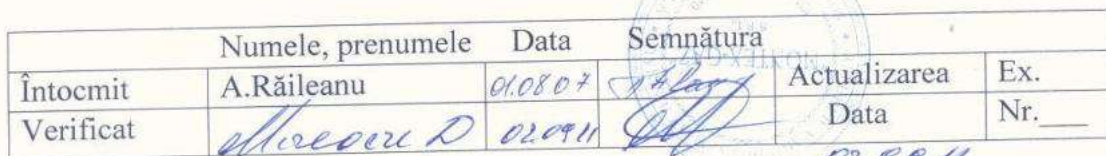 Numele, prenumele Data Semnătura
Întocmit A.Răileanu 01.08.07 Actualizarea Ex.
Verificat D 02.09.11 Data Nr.___